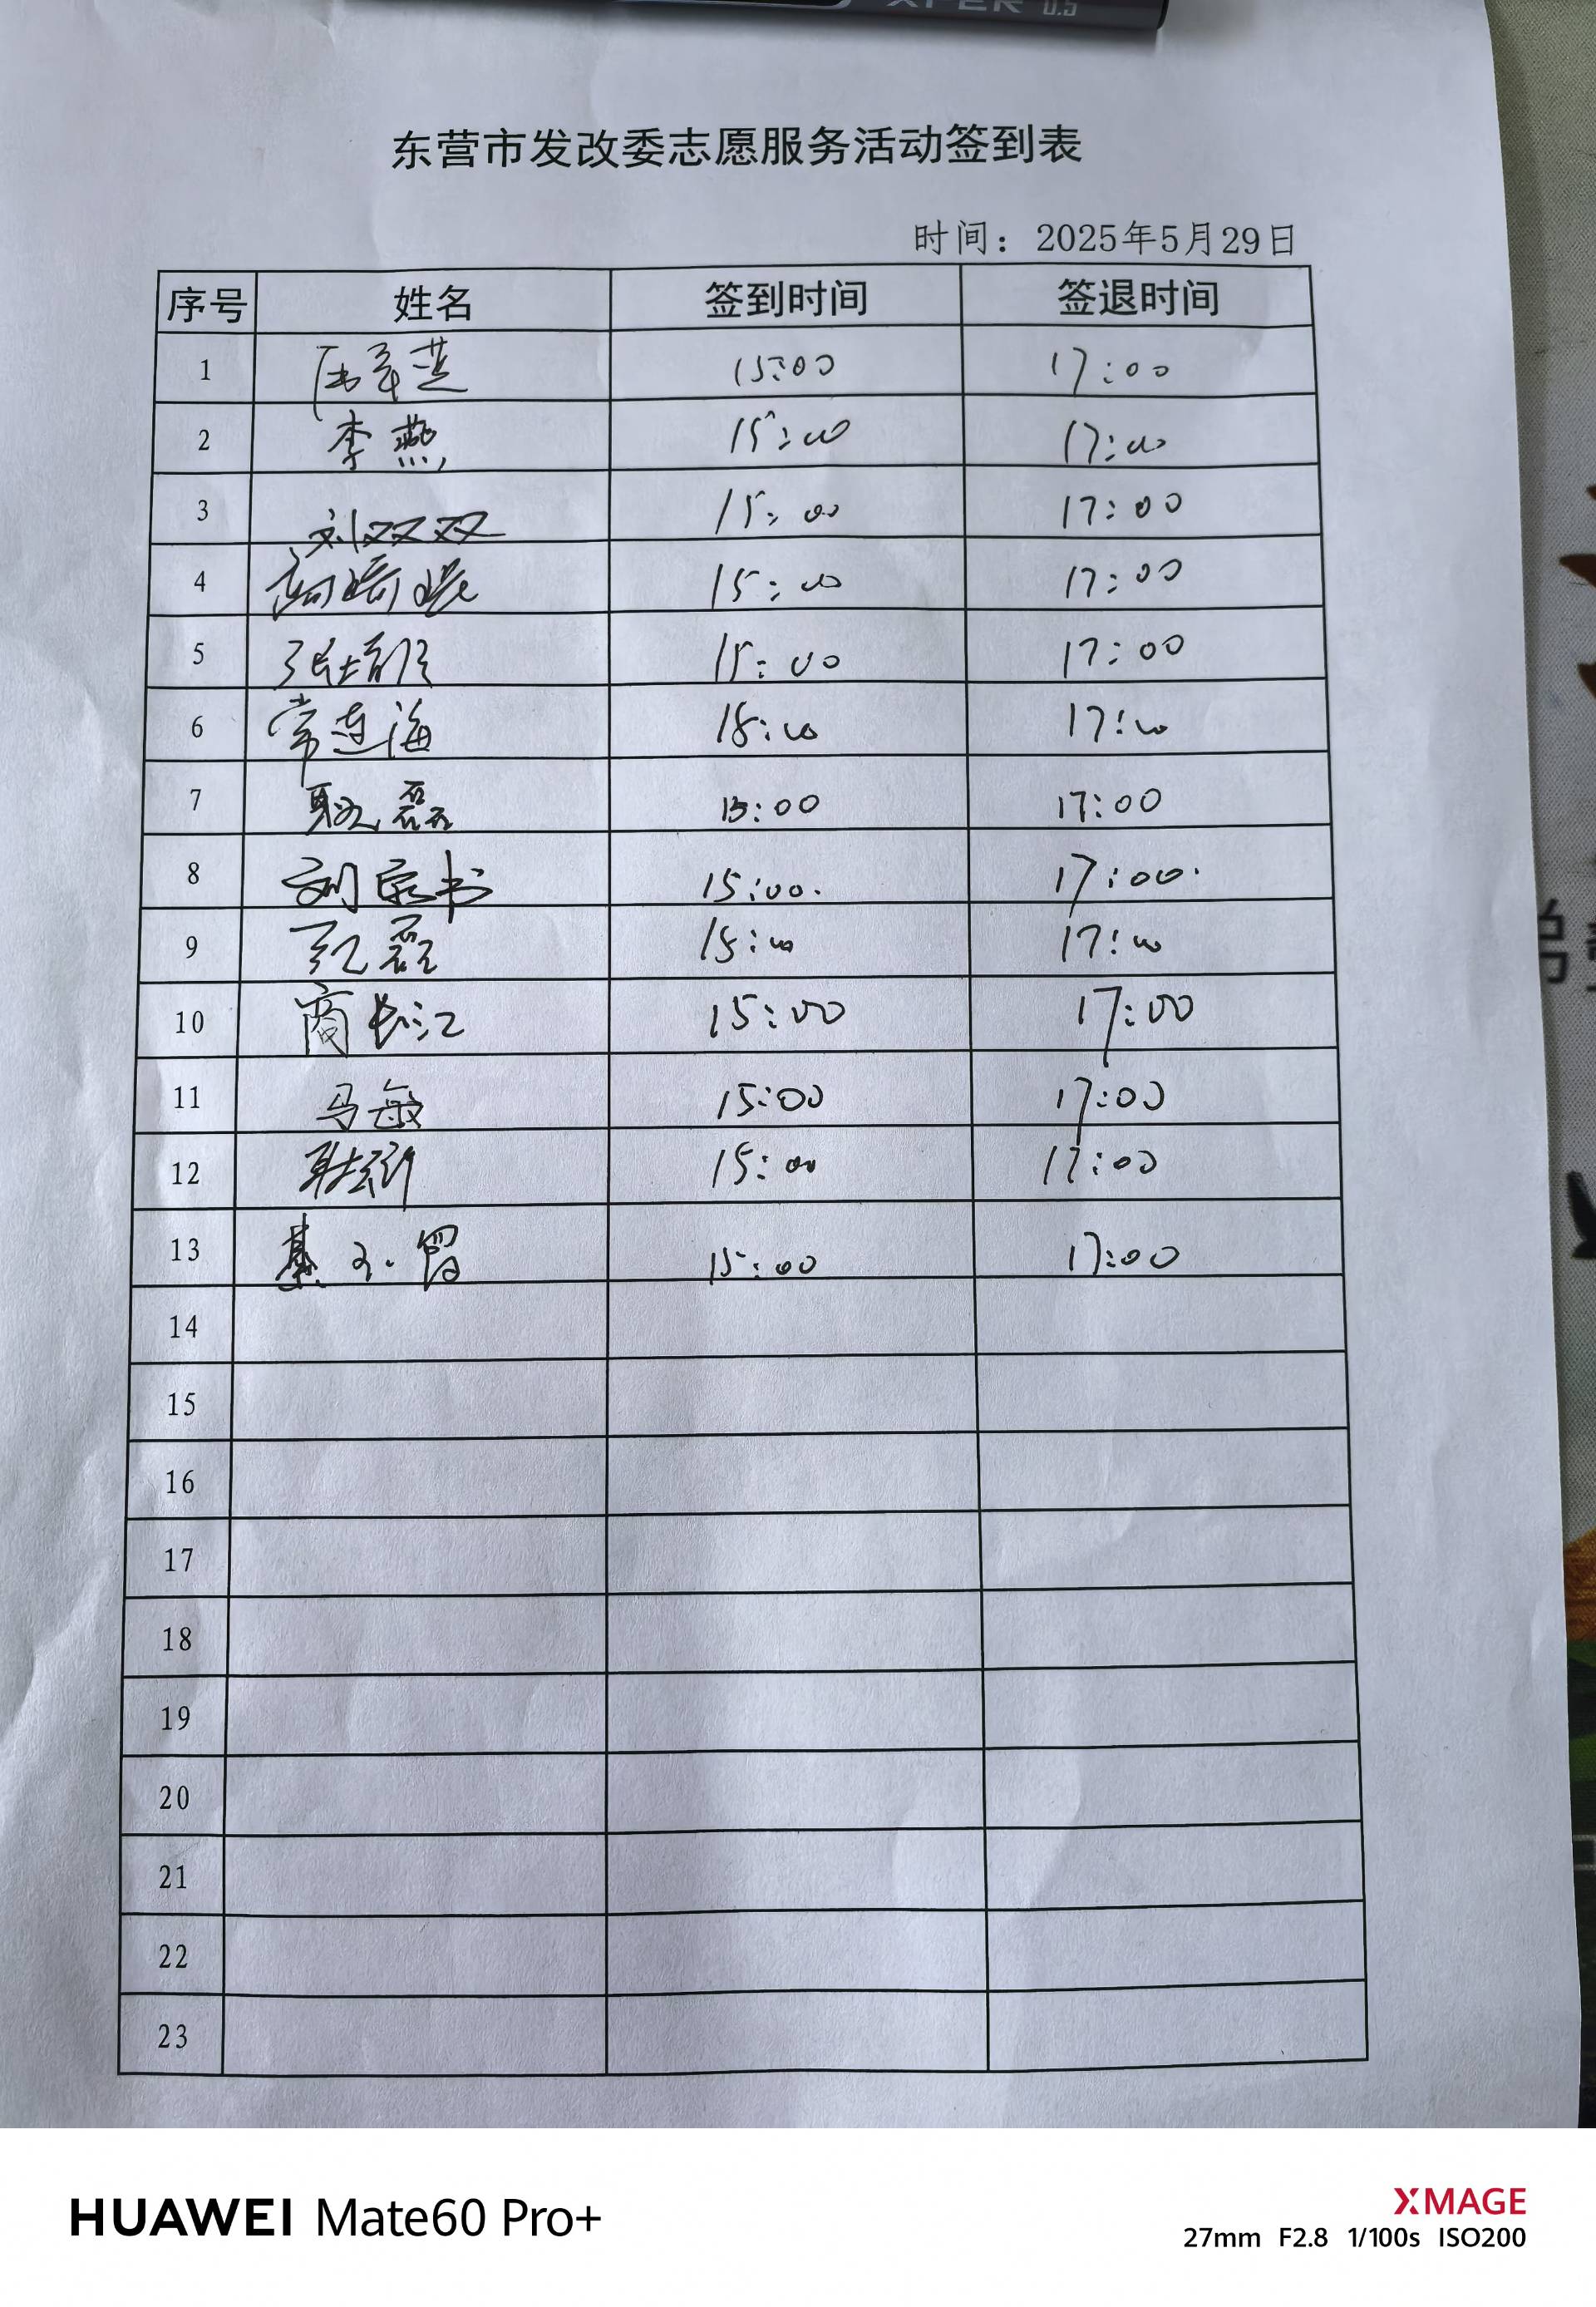 XPER 0.5
东营市发改委志愿服务活动签到表
时间：2025年5月29日
序号 姓名 签到时间 签退时间
1 15:00 17:00
2 李燕 15:00 17:00
3 刘双双 15:00 17:00
4 15:00 17:00
5 15:00 17:00
6 常连海 15:00 17:00
7 耿磊 15:00 17:00
8 15:00. 17:00.
9 15:00 17:00
10 商长江 15:00 17:00
11 马敏 15:00 17:00
12 15:00 17:00
13 15:00 17:00
14
15
16
17
18
19
20
21
22
23
HUAWEI Mate60 Pro+
XMAGE
27mm F2.8 1/100s ISO200